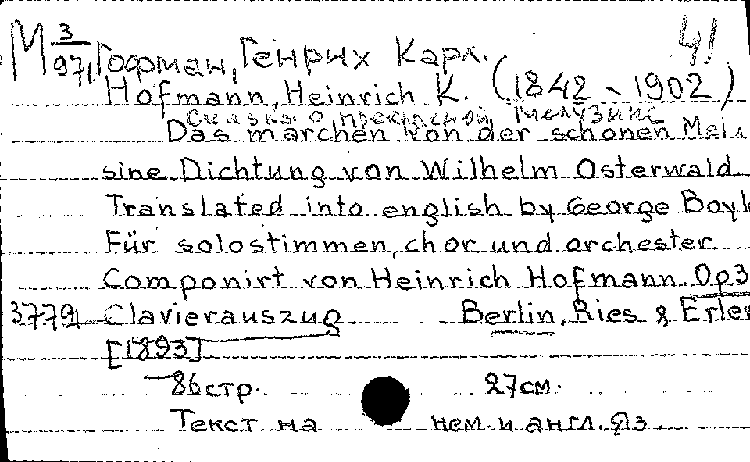 М 3/971 Гофман, Генрих Карл. 41
Hofmann, Heinrich K. (1842 - 1902)
Сказка о прекрасной Мелузине
Das märchen von der schönen Melu
sine Dichtung von Wilhelm Osterwald
Translated into english by George Boyle
Für solostimmen, chor und orchester
Componirt von Heinrich Hofmann Op3
3779 Clavierauszug Berlin, Ries & Erler
[1893]
86 стр. 27 см.
Текст на нем. и англ. яз.